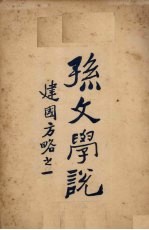 孫文學說
建國方略之一